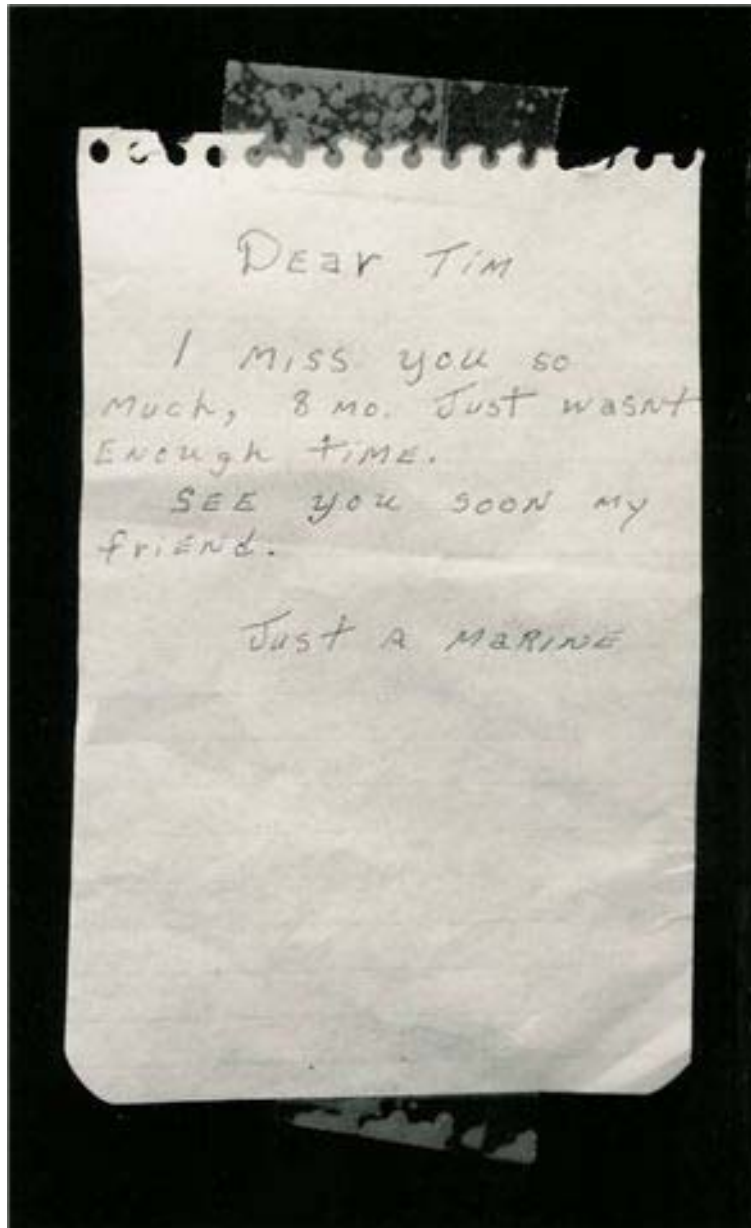 Dear Tim
I miss you so
much, 8 mo. Just wasnt
Enough time.
See you soon my
friend.
Just a Marine